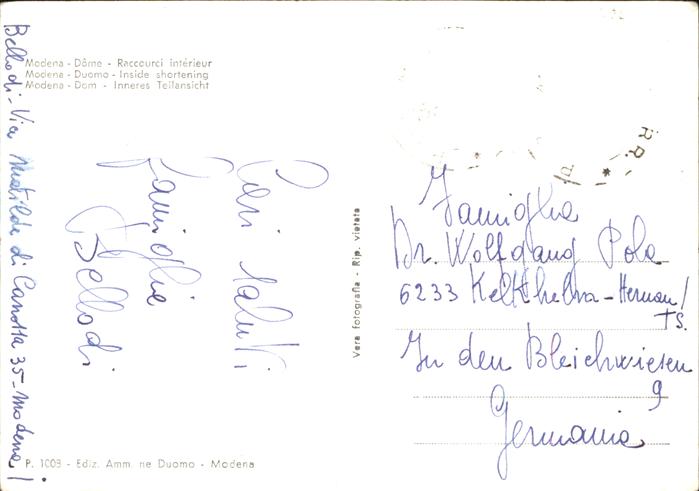 Modena - Dôme - Raccourci intérieur
Modena - Duomo - Inside shortening
Modena - Dom - Inneres Teilansicht
Bellodi - Via Matilde di Canossa 35 - Modena
Cari saluti
Famiglia
Bellodi
Vera fotografia - Rip. vietata
R.R.
Famiglia
Dr. Wolfgang Pola
6233 Kelkheim - Hornau/
TS.
In den Bleichwiesen
9
Germania
P. 1008 - Ediz. Amm. ne Duomo - Modena